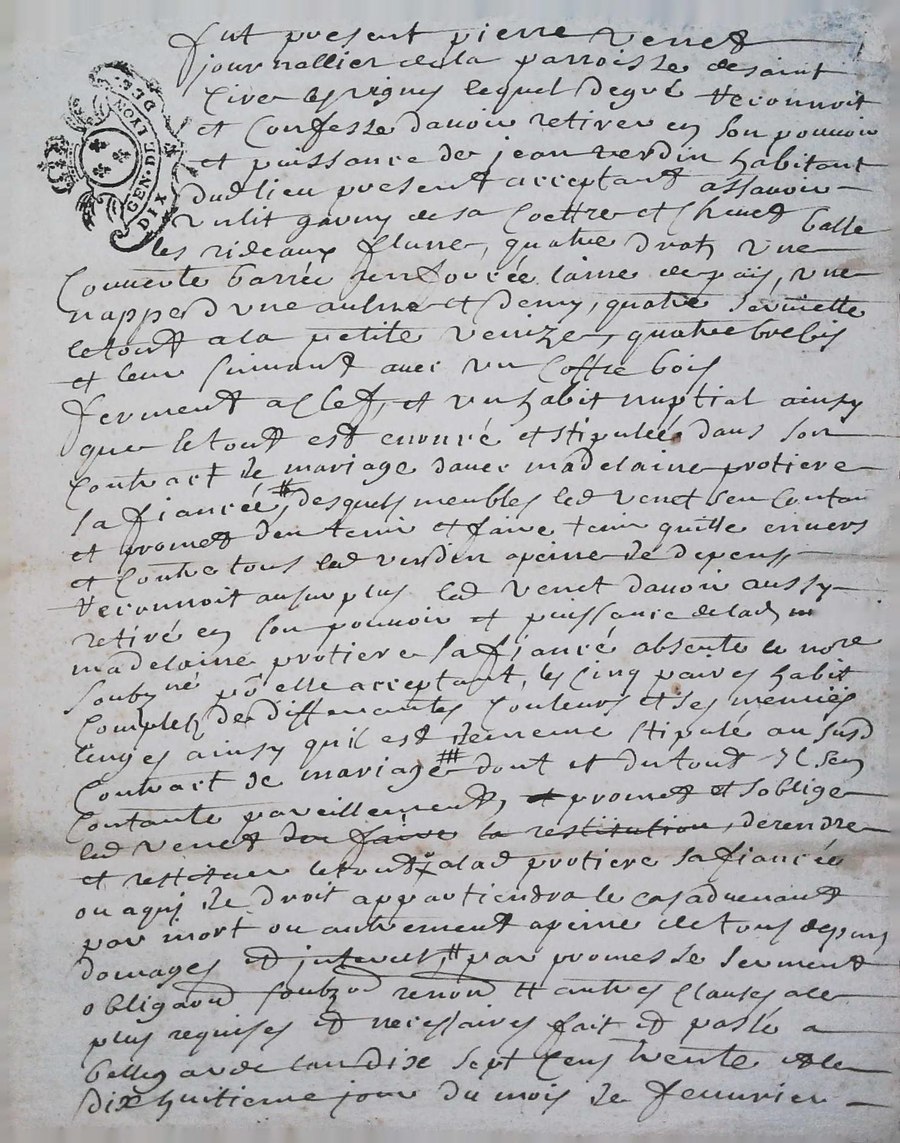 fut present pierre venet
journallier de la parroisse de saint
Cire les vignes lequel de gré reconnoit
et Confesse davoir retirer en son pouvoir
et puissance de jean verdin habitant
dud lieu present acceptant assavoir
un lit garny de sa Coettre et Chevet balle
les rideaux fluné, quatre drats une
Couverte barrée renforcée laine de pais, une
nappe d'une aulne et demy, quatre serviette
le tout a la petite venize, quatre brebis
et leur suivant avec un Coffre bois
ferment a Clef, et un habit nuptial ainsy
que le tout est enoncé et stipulée dans son
Contract de mariage avec madelaine protiere
sa fiancée # desquels meubles led venet sen Contan
et promet den tenir et faire tenir quitte envers
et Contre tous led verdin apeine de depens
reconnoit au surplus led venet davoir aussy
retiré en son pouvoir et puissance de lad
madelaine protiere sa fiancée absente le nore
soubzné po elle acceptant, les Cinq paires habit
Complets de differantes Couleurs et ses menues
linges ainsy quil est de meme stipulé au susd
Contract de mariage # dont et du tout Il sen
Contante pareillement, et promet et soblige
led venet den faire la restitution, de rendre
et restituer le tout a lad protiere sa fiancée
ou a qui de droit appartiendra le cas advenant
par mort ou autrement apeine de tous depens
domages et interets, # par promesse serment
obligaons soubzon renon et autres Clauses a ce
plus requises et necessaires fait et passé a
bellegarde lan dix sept Cens trente et le
dix huitieme jour du mois de fevvrier
GEN. DE LYON
DIX